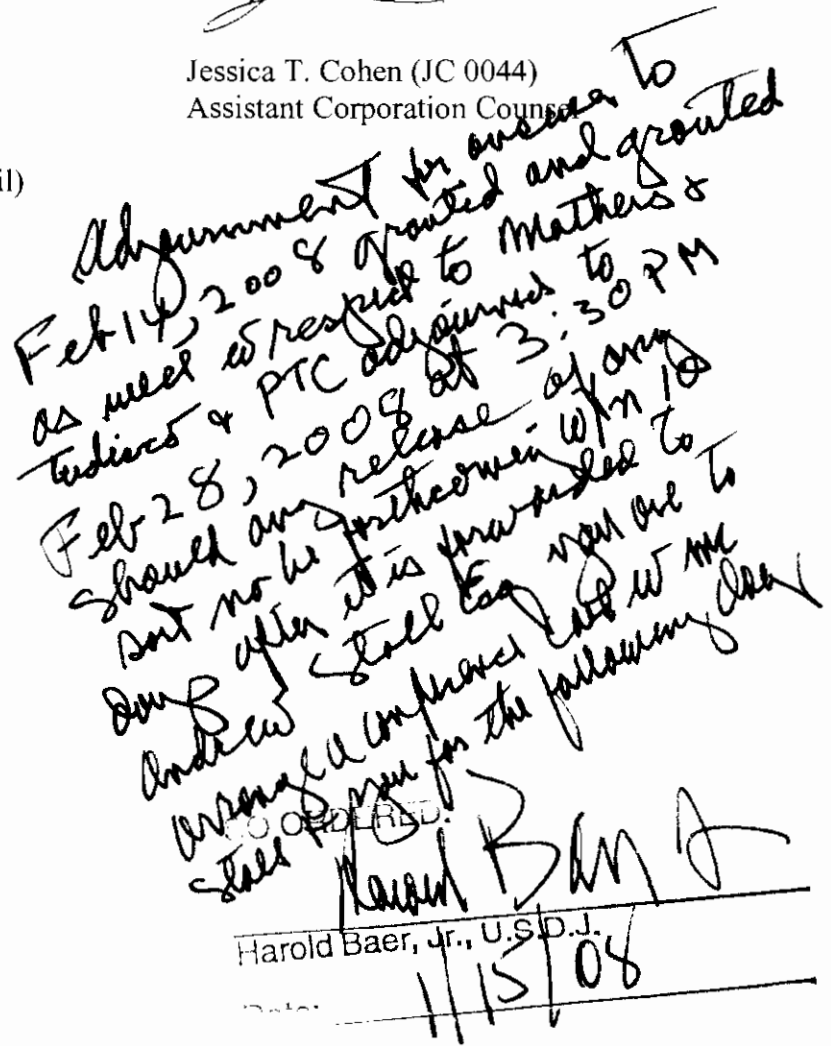 Jessica T. Cohen (JC 0044)
Assistant Corporation Counsel
il)
Adjournment for answer to
Feb 14, 2008 granted and granted
as well w respect to Mathers &
Tudisco & PTC adjourned to
Feb 28, 2008 at 3:30 PM
Should any release of any
sort no be forthcoming w/n 10
days after it is forwarded to
Andrew Stoll Esq you are to
arrange a conference call w me
Stoll & you for the following day
SO ORDERED.
Harold Baer Jr
Harold Baer, Jr., U.S.D.J.
1/15/08
Date: